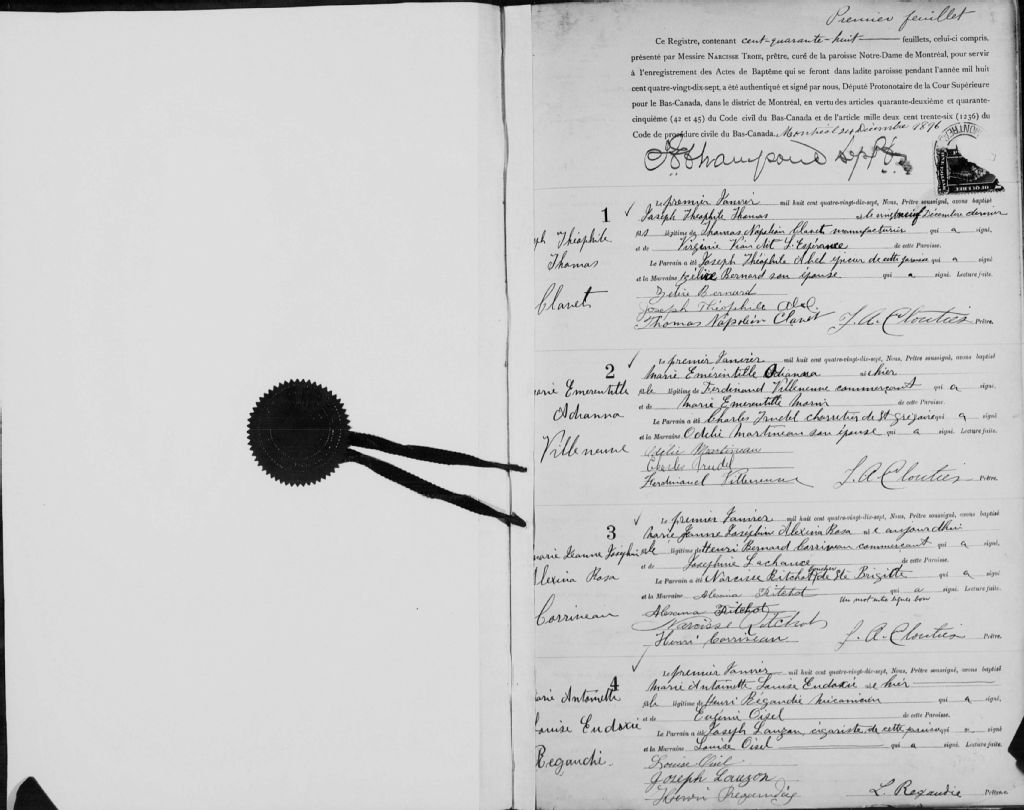 Premier feuillet
Ce Registre, contenant cent-quarante-huit feuillets, celui-ci compris,
présenté par Messire Narcisse Troie, prêtre, curé de la paroisse Notre-Dame de Montréal, pour servir
à l'enregistrement des Actes de Baptême qui se feront dans ladite paroisse pendant l'année mil huit
cent quatre-vingt-dix-sept, a été authentiqué et signé par nous, Député Protonotaire de la Cour Supérieure
pour le Bas-Canada, dans le district de Montréal, en vertu des articles quarante-deuxième et quarante-
cinquième (42 et 45) du Code civil du Bas-Canada et de l'article mille deux cent trente-six (1236) du
Code de procédure civile du Bas-Canada. Montréal 24 Décembre 1896
1
Le premier Janvier mil huit cent quatre-vingt-dix-sept, Nous, Prêtre soussigné, avons baptisé
Joseph Théophile Thomas né le vingt neuf Décembre dernier
fils légitime de Thomas Napoléon Clavet manufacturier qui a signé,
et de Virginie Vian dit L'Espérance de cette Paroisse.
Le Parrain a été Joseph Théophile Abel de cette paroisse qui a signé
et la Marraine Zélire Bernard son épouse qui a signé. Lecture faite.
Zélire Bernard
Joseph Théophile Abel
Thomas Napoléon Clavet J. A. Cloutier Prêtre.
ph Théophile
Thomas
Clavet
2
Le premier Janvier mil huit cent quatre-vingt-dix-sept, Nous, Prêtre soussigné, avons baptisé
Marie Emérentille Adianna née hier
fille légitime de Ferdinand Villeneuve commerçant qui a signé,
et de Marie Emerentille Morin de cette Paroisse.
Le Parrain a été Charles Trudel charretier de St Grégoire qui a signé
et la Marraine Odélie Martineau son épouse qui a signé. Lecture faite.
Odélie Martineau
Charles Trudel
Ferdinand Villeneuve J. A. Cloutier Prêtre.
arie Emerentille
Adianna
Villeneuve
3
Le premier Janvier mil huit cent quatre-vingt-dix-sept, Nous, Prêtre soussigné, avons baptisé
Marie Jeanne Joséphin Alexina Rosa née aujourdhui
fille légitime de Henri Bernard Corriveau commerçant qui a signé,
et de Joséphine Lachance de cette Paroisse.
Le Parrain a été Narcisse Ritchot boucher de Ste Brigitte qui a signé
et la Marraine Alexina Ritchot qui a signé. Lecture faite.
Un mot entre lignes bon
Alexina Ritchot
Narcisse Ritchot
Henri Corriveau J. A. Cloutier Prêtre.
arie Jeanne Joséphin
Alexina Rosa
Corriveau
4
Le premier Janvier mil huit cent quatre-vingt-dix-sept, Nous, Prêtre soussigné, avons baptisé
Marie Antoinette Louise Eudoxie née hier
fille légitime de Henri Regaudie mécanicien qui a signé,
et de Eugénie Oisel de cette Paroisse.
Le Parrain a été Joseph Lauzon, cigariste, de cette paroisse qui a signé
et la Marraine Louise Oisel qui a signé. Lecture faite.
Louise Oisel
Joseph Lauzon
Henri Regaudie L. Regaudie Prêtre
arie Antoinette
Louise Eudoxie
Regaudie